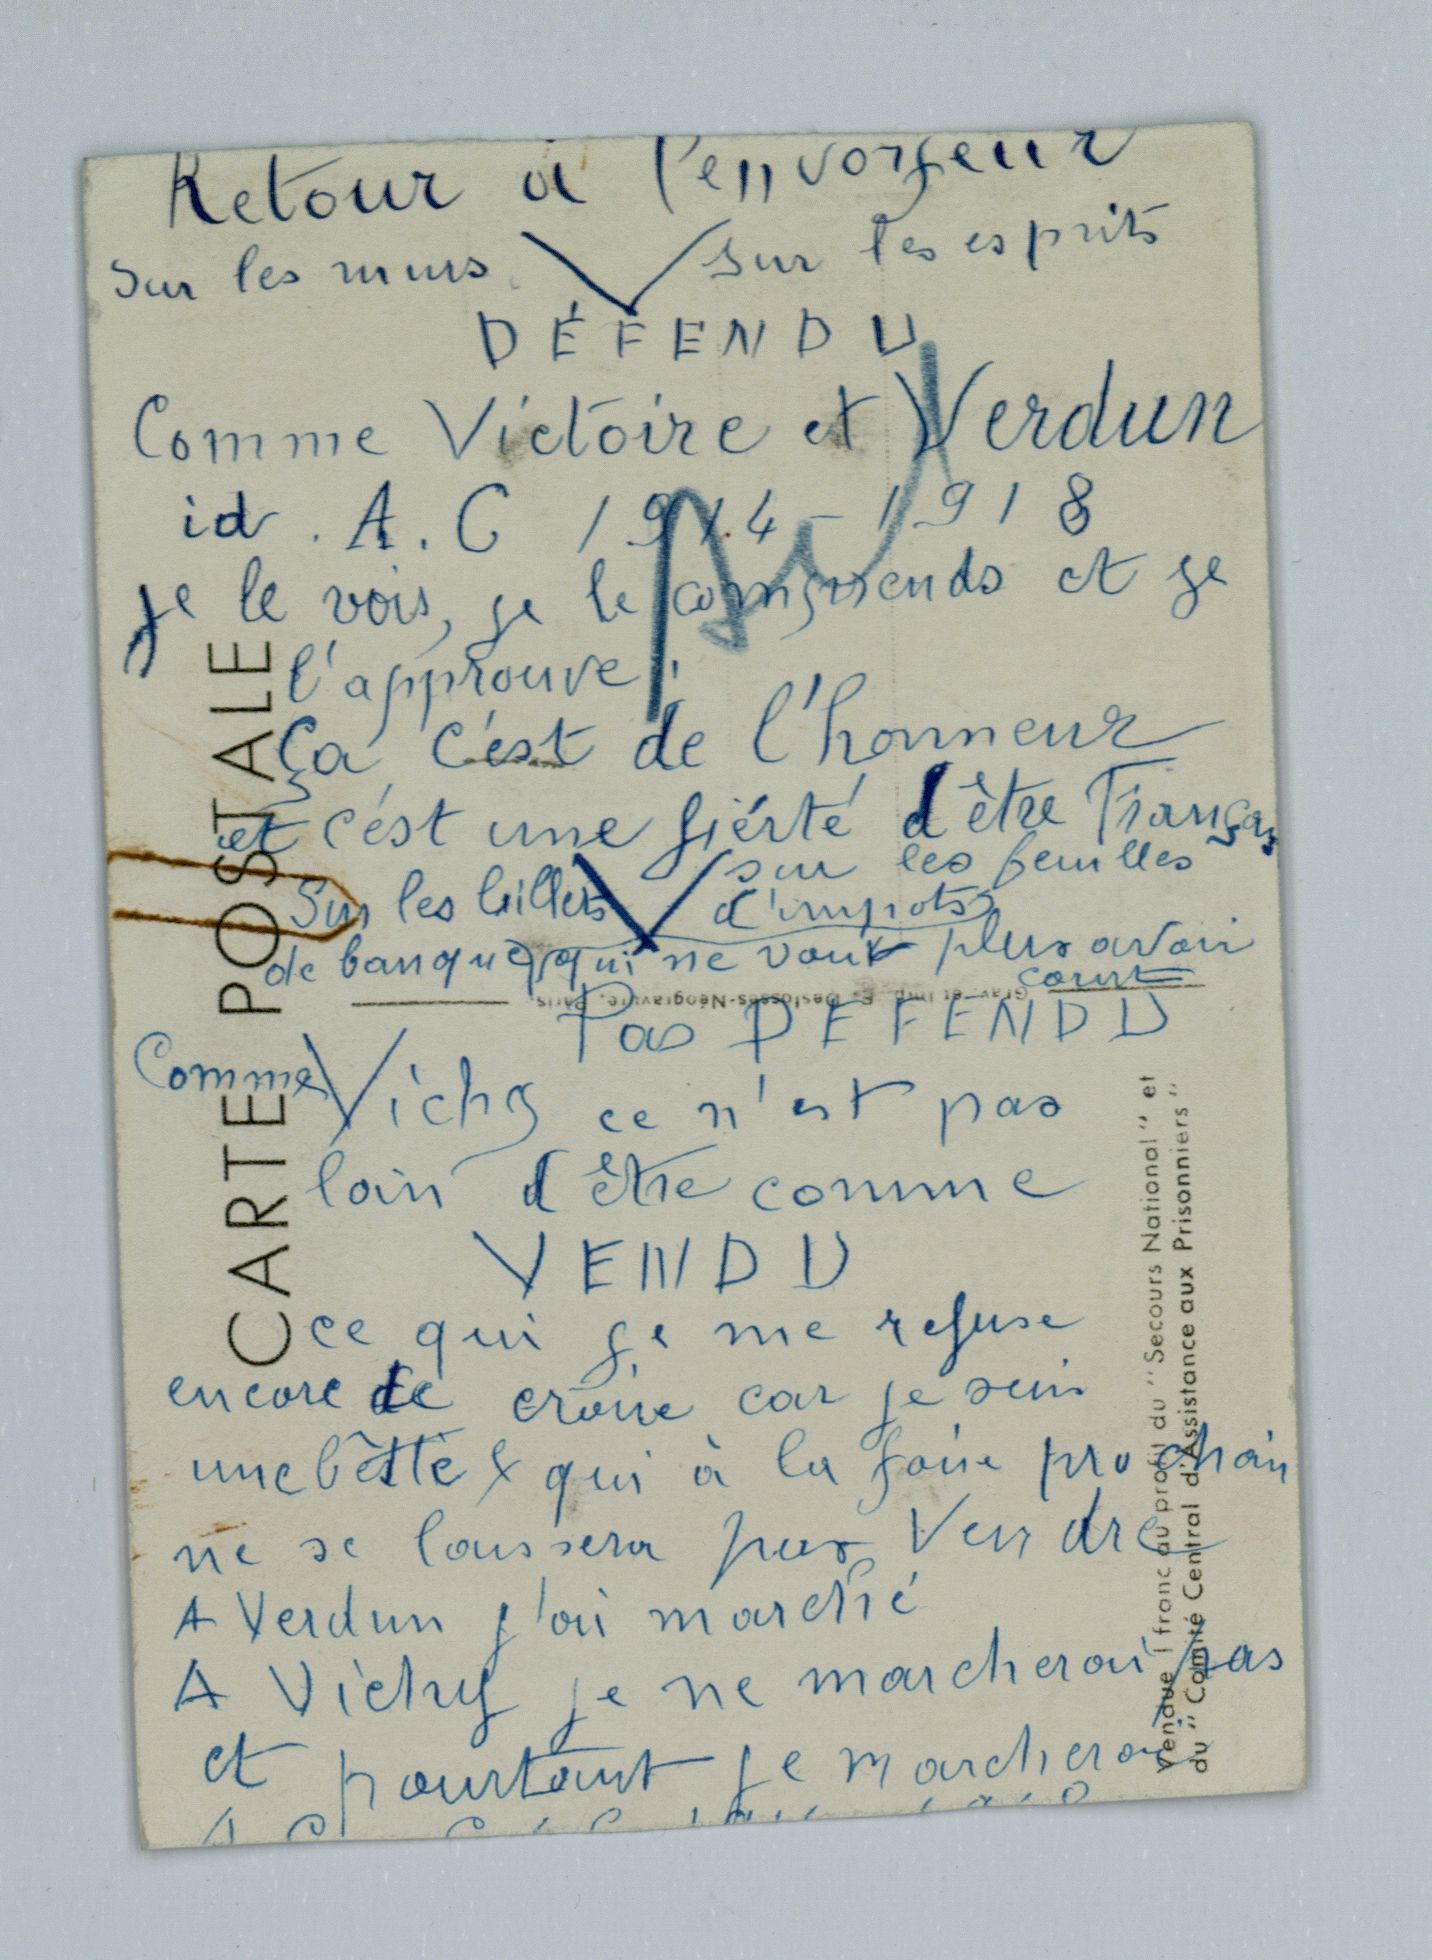 Retour à l'envoyeur
Sur les murs V sur les esprits
DÉFENDU
Comme Victoire et Verdun
id. A.C 1914-1918
je le vois, je le comprends et je
l'approuve!
Ça c'est de l'honneur
et c'est une fiérté d'être Français
Sur les billets V sur les feuilles
d'impots
de banque, qui ne vont plus avoir
court
Grav. et Imp. E. Desfossés-Néogravure, Paris.
Pas DEFENDU
Comme Vichy ce n'est pas
loin d'être comme
VENDU
ce qui je me refuse
encore de croire car je suis
une bêtte & qui à la foire prochain
ne se laissera pas Vendre
A Verdun j'ai marché
A Vichy je ne marcherai pas
et pourtant je marcherai
CARTE POSTALE
Vendue 1 franc au profit du "Secours National" et
du "Comité Central d'Assistance aux Prisonniers"